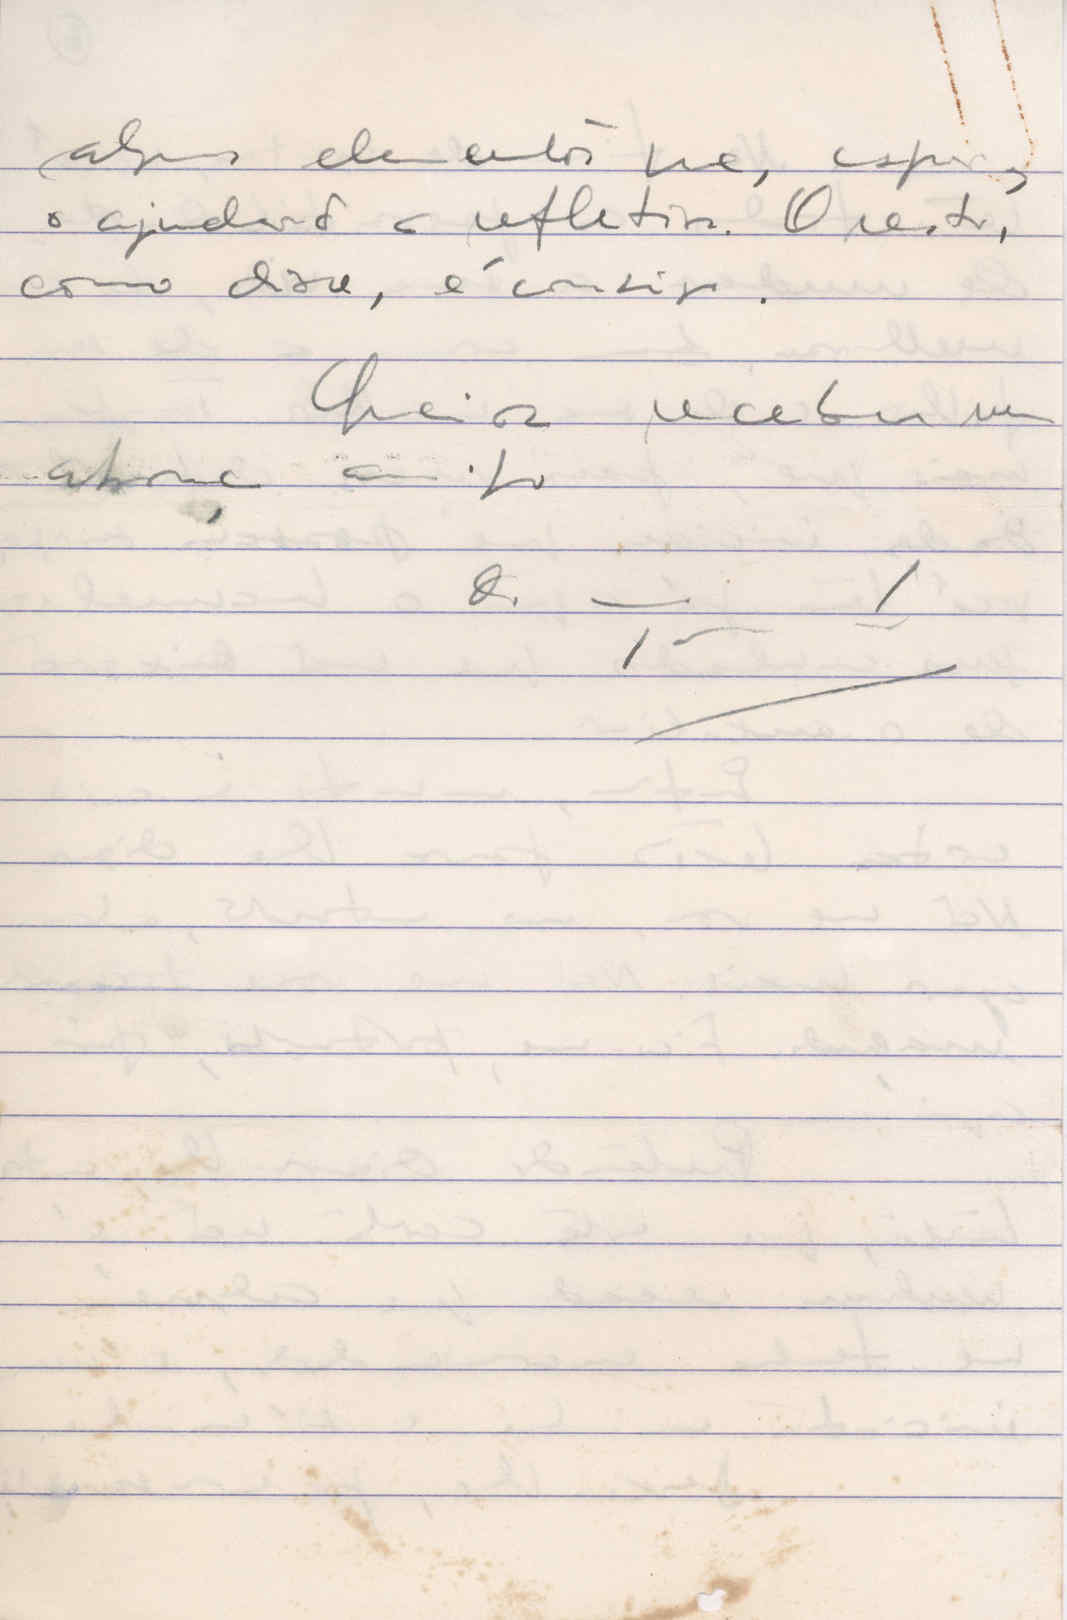 alguns elementos que, espero,
o ajudarão a reflectir. O resto,
como disse, é consigo.
Queira receber um
abraço amigo
do